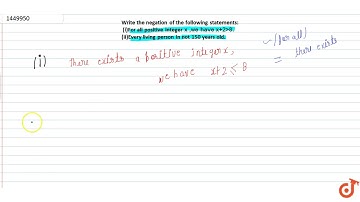 1449950
Write the negation of the following statements:
(i)For all positive integer x ,we have x+2>8
(ii)Every living person in not 150 years old.
(for all)
= there exists
(i) there exists a positive integer x,
we have x+2 ≤ 8